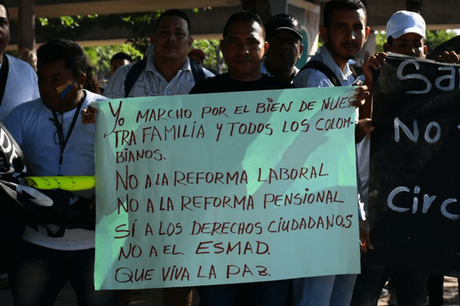 YO MARCHO POR EL BIEN DE NUES
TRA FAMILIA Y TODOS LOS COLOM-
BIANOS.
NO A LA REFORMA LABORAL
NO A LA REFORMA PENSIONAL
SÍ A LOS DERECHOS CIUDADANOS
NO A EL ESMAD.
QUE VIVA LA PAZ.
No
Circ